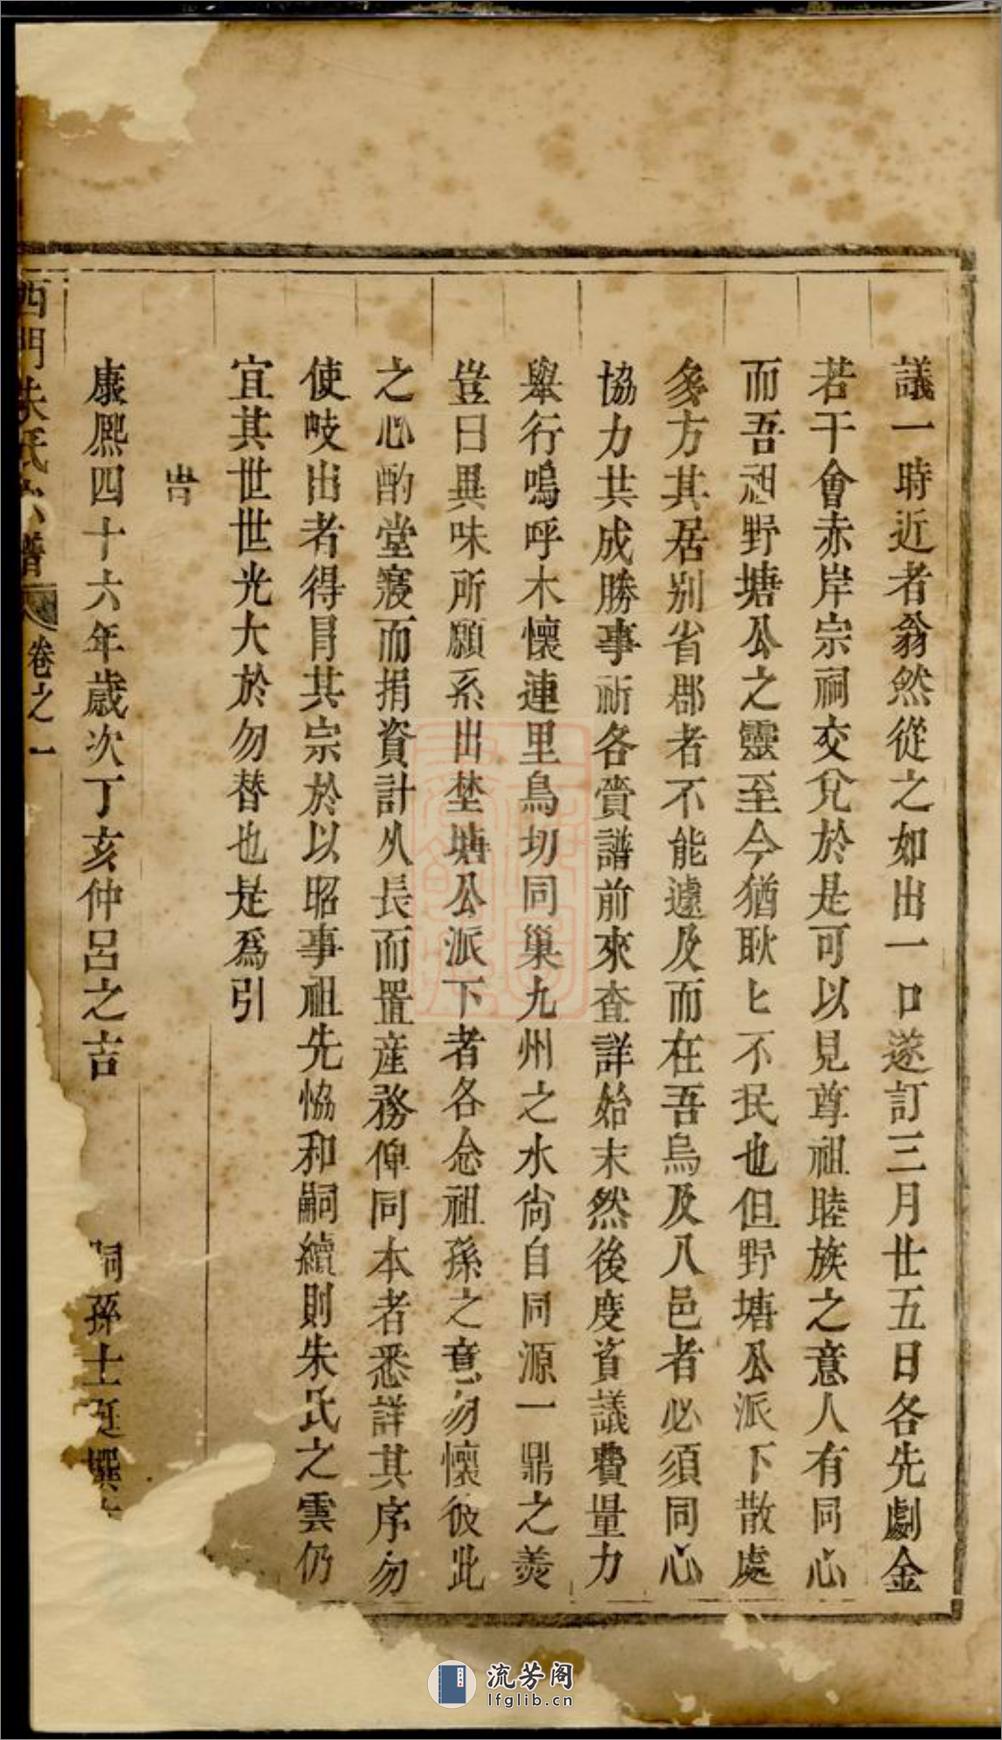 議一時近者翕然從之如出一口遂訂三月廿五日各先劇金
若干會赤岸宗祠交兌於是可以見尊祖睦族之意人有同心
而吾祖野塘公之靈至今猶耿匕不民也但野塘公派下散處
多方其居别省郡者不能遽及而在吾烏及八邑者必須同心
協力共成勝事祈各賫譜前來查詳始末然後度資議費量力
舉行嗚呼木懷連里鳥切同巢九州之水尙自同源一鼎之羡
豈曰異味所願系出埜塘公派下者各念祖孫之意勿懷彼此
之心酌堂寢而捐資計久長而置産務俾同本者悉詳其序勿
使岐出者得冐其宗於以昭事祖先恊和嗣續則朱氏之雲仍
宜其世世光大於勿替也是爲引
旹
康熈四十六年歲次丁亥仲呂之吉　嗣孫士廷撰
西門朱氏宗譜　卷之一
流芳阁
lfglib.cn